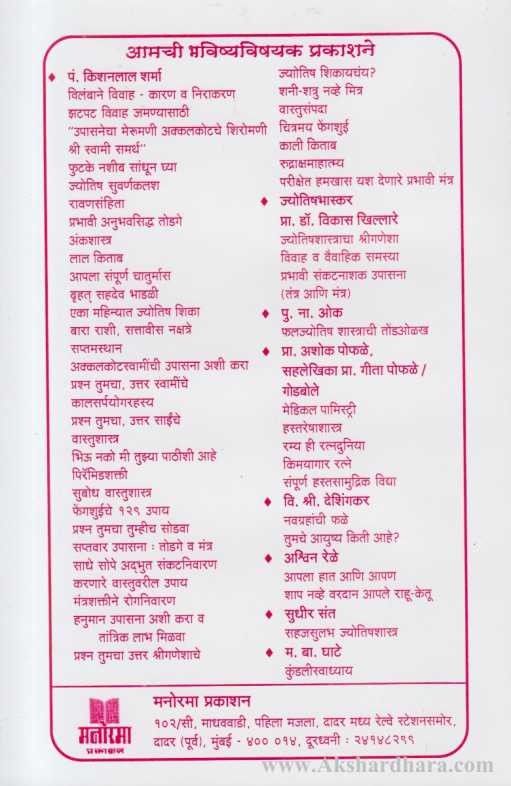 आमची भविष्यविषयक प्रकाशने
♦ पं. किशनलाल शर्मा
विलंबाने विवाह - कारण व निराकरण
झटपट विवाह जमण्यासाठी
"उपासनेचा मेरूमणी अक्कलकोटचे शिरोमणी
श्री स्वामी समर्थ"
फुटके नशीब सांधून घ्या
ज्योतिष सुवर्णकलश
रावणसंहिता
प्रभावी अनुभवसिद्ध तोडगे
अंकशास्त्र
लाल किताब
आपला संपूर्ण चातुर्मास
बृहत् सहदेव भाडळी
एका महिन्यात ज्योतिष शिका
बारा राशी, सत्तावीस नक्षत्रे
सप्तमस्थान
अक्कलकोटस्वामींची उपासना अशी करा
प्रश्न तुमचा, उत्तर स्वामींचे
कालसर्पयोगरहस्य
प्रश्न तुमचा, उत्तर साईंचे
वास्तुशास्त्र
भिऊ नको मी तुझ्या पाठीशी आहे
पिरॅमिडशक्ती
सुबोध वास्तुशास्त्र
फेंगशुईचे १२९ उपाय
प्रश्न तुमचा तुम्हीच सोडवा
सप्तवार उपासना : तोडगे व मंत्र
साधे सोपे अद्भुत संकटनिवारण
करणारे वास्तुवरील उपाय
मंत्रशक्तीने रोगनिवारण
हनुमान उपासना अशी करा व
तांत्रिक लाभ मिळवा
प्रश्न तुमचा उत्तर श्रीगणेशाचे
ज्योतिष शिकायचंय?
शनी-शत्रु नव्हे मित्र
वास्तुसंपदा
चित्रमय फेंगशुई
काली किताब
रुद्राक्षमाहात्म्य
परीक्षेत हमखास यश देणारे प्रभावी मंत्र
♦ ज्योतिषभास्कर
प्रा. डॉ. विकास खिल्लारे
ज्योतिषशास्त्राचा श्रीगणेशा
विवाह व वैवाहिक समस्या
प्रभावी संकटनाशक उपासना
(तंत्र आणि मंत्र)
♦ पु. ना. ओक
फलज्योतिष शास्त्राची तोंडओळख
♦ प्रा. अशोक पोफळे,
सहलेखिका प्रा. गीता पोफळे /
गोडबोले
मेडिकल पामिस्ट्री
हस्तरेषाशास्त्र
रम्य ही रत्नदुनिया
किमयागार रत्ने
संपूर्ण हस्तसामुद्रिक विद्या
♦ वि. श्री. देशिंगकर
नवग्रहांची फळे
तुमचे आयुष्य किती आहे?
♦ अश्विन रेळे
आपला हात आणि आपण
शाप नव्हे वरदान आपले राहू-केतू
♦ सुधीर संत
सहजसुलभ ज्योतिषशास्त्र
♦ म. बा. घाटे
कुंडलीस्वाध्याय
मनोरमा
प्रकाशन
मनोरमा प्रकाशन
१०२/सी, माधववाडी, पहिला मजला, दादर मध्य रेल्वे स्टेशनसमोर,
दादर (पूर्व), मुंबई - ४०० ०१४, दूरध्वनी : २४१४८२९९
www.Akshardhara.com